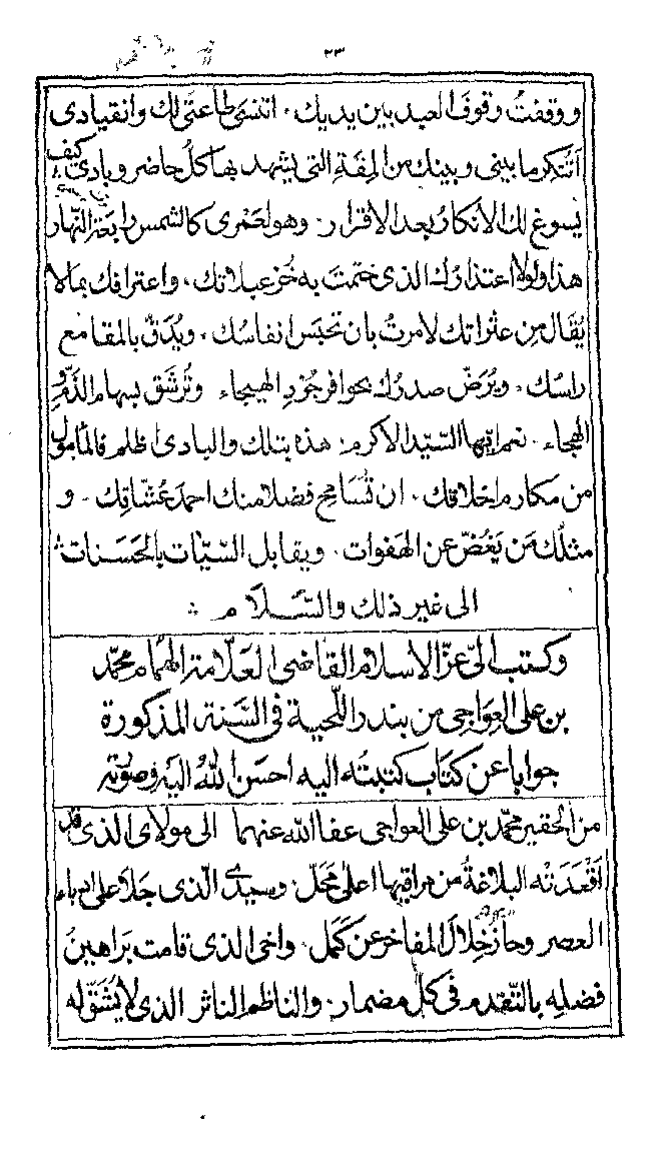 ٢٣
ووقفتُ وقوفَ العبد بين يديك ، اتنسى طاعتى لك وانقيادى
أتنكر ما بينى وبينك من المِقَةِ التى يشهد بها كلُ حاضر وبادى كيف
يسوغ لك الانكارُ بعد الاقرار . وهو لعَمْرى كالشمس رابعة النّهار
هذا ولولا اعتذارك الذى ختمتَ به خُزعبلاتك ، واعترافك بمالا
يُقَال مِن عثراتك لامرتُ بان تحبَس انفاسُك ، ويُدَقّ بالمقامع
راسُك ، ويُرَضّ صدرُك بحوافر جُرْدِ الهيجاء ، وتُرشَق بسهام الذَّمِّ و
الهجاء . نعم ايّها السّيّد الاكرم : هذه بتلك والبادى اظلم فالمأمول
من مكارم اخلاقك ، ان تُسَامح فضلا منك احمدَ عُشّاقِك . و
مثلُك مَن يَغُضّ عن الهَفوات . ويقابل السّيّئات بالحَسَنات
الى غير ذلك والسّلام
وكتب الىّ عزّ الاسلام القاضى العَلّامة الهُمام محمّد
بن على العِوَاجى من بندر اللُّحية فى السَّنة المذكورة
جوابا عن كتَاب كتبتُه اليه احسَن اللهُ اليه وصورته
من الحقير محمّد بن على العواجى عفا الله عنهما الى مولاى الذى قد
اَقْعَدَتْه البلاغةُ من مراقيها اعلى محَلّ . وسيدى الّذى جَلا على ادباء
العصر وحازَ خِلالَ المفاخر عن كَمَل . واخى الذى قامت بَراهينُ
فضلِه بالتّقدم فى كلّ مضمار . والناظم الناثر الذى لا يُشَقّ له